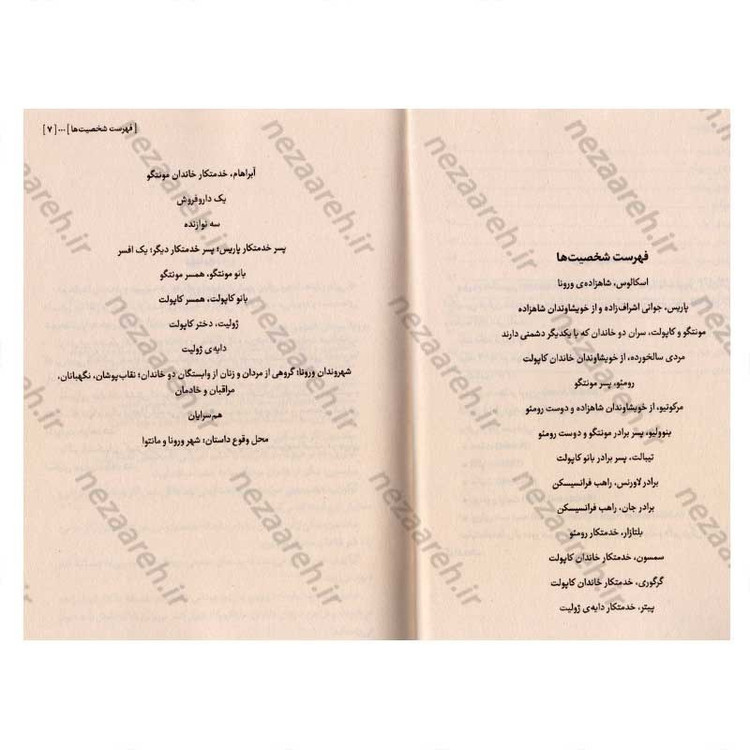 فهرست شخصیت‌ها
اسکالوس، شاهزاده‌ی ورونا
پاریس، جوانی اشراف‌زاده و از خویشاوندان شاهزاده
مونتگو و کاپولت، سران دو خاندان که با یکدیگر دشمنی دارند
مردی سالخورده، از خویشاوندان خاندان کاپولت
رومئو، پسر مونتگو
مرکوتیو، از خویشاوندان شاهزاده و دوست رومئو
بنوولیو، پسر برادر مونتگو و دوست رومئو
تیبالت، پسر برادر بانو کاپولت
برادر لاورنس، راهب فرانسیسکن
برادر جان، راهب فرانسیسکن
بلتازار، خدمتکار رومئو
سمسون، خدمتکار خاندان کاپولت
گرگوری، خدمتکار خاندان کاپولت
پیتر، خدمتکار دایه‌ی ژولیت
[ فهرست شخصیت‌ها ] ... [ ۷ ]
آبراهام، خدمتکار خاندان مونتگو
یک داروفروش
سه نوازنده
پسر خدمتکار پاریس؛ پسر خدمتکار دیگر؛ یک افسر
بانو مونتگو، همسر مونتگو
بانو کاپولت، همسر کاپولت
ژولیت، دختر کاپولت
دایه‌ی ژولیت
شهروندان ورونا؛ گروهی از مردان و زنان از وابستگان دو خاندان؛ نقاب‌پوشان، نگهبانان،
مراقبان و خادمان
هم‌سرایان
محل وقوع داستان: شهر ورونا و مانتوا
nezaareh.ir